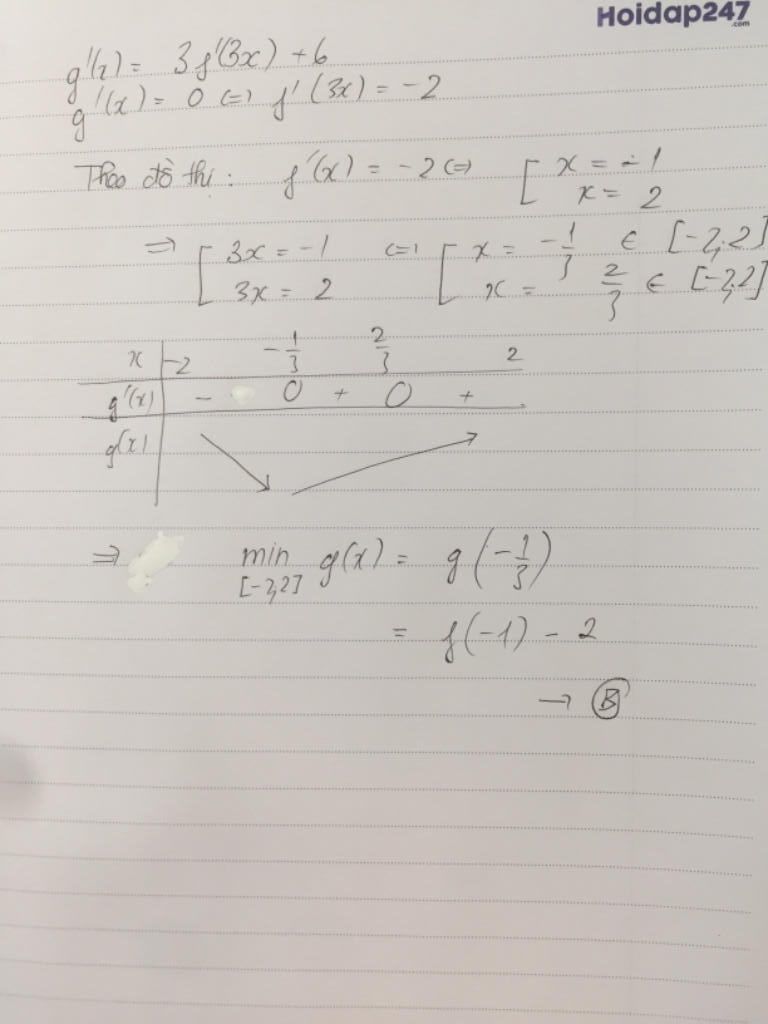 Hoidap247
.com
g'(x) = 3f'(3x) + 6
g'(x) = 0 <=> f'(3x) = -2
Theo đồ thị: f'(x) = -2 <=> [ x = -1
x = 2
=> [ 3x = -1 <=> [ x = -1/3 ∈ [-2,2]
3x = 2 x = 2/3 ∈ [-2,2]
x -2 -1/3 2/3 2
g'(x) - 0 + 0 +
g(x)
=> min g(x) = g(-1/3)
[-2,2]
= f(-1) - 2
→ B